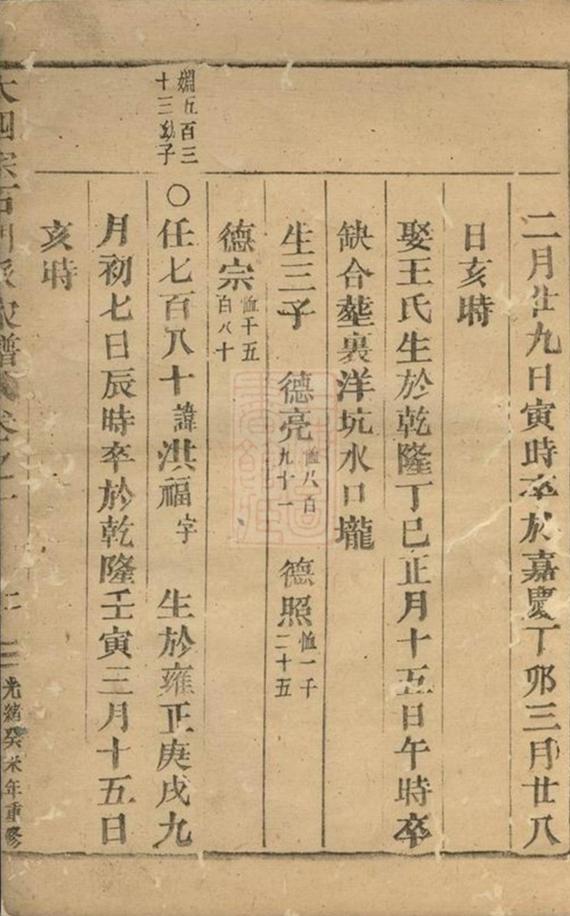 二月廿九日寅時卒於嘉慶丁卯三月廿八
日亥時
娶王氏生於乾隆丁巳正月十五日午時卒
缺合塟裏洋坑水口壠
生三子 德亮 恤八百九十一 德照 恤一千二十五
德宗 恤千五百八十
嫺五百三十三幼子
〇任七百八十諱洪福字 生於雍正庚戌九
月初七日辰時卒於乾隆壬寅三月十五日
亥時
光緒癸未年重修